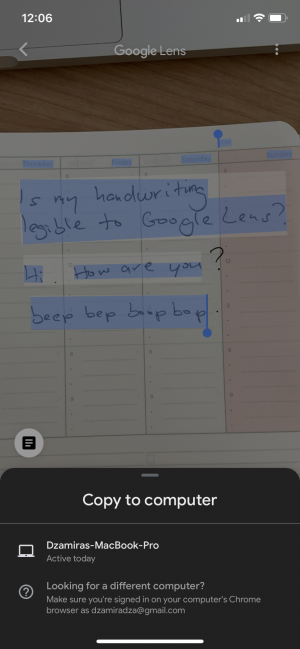 12:06
Google Lens
Thursday Friday Saturday Sunday
Is my handwriting
legible to Google Lens?
Hi. How are you?
beep bep boop bop.
Copy to computer
Dzamiras-MacBook-Pro
Active today
Looking for a different computer?
Make sure you're signed in on your computer's Chrome
browser as dzamiradza@gmail.com